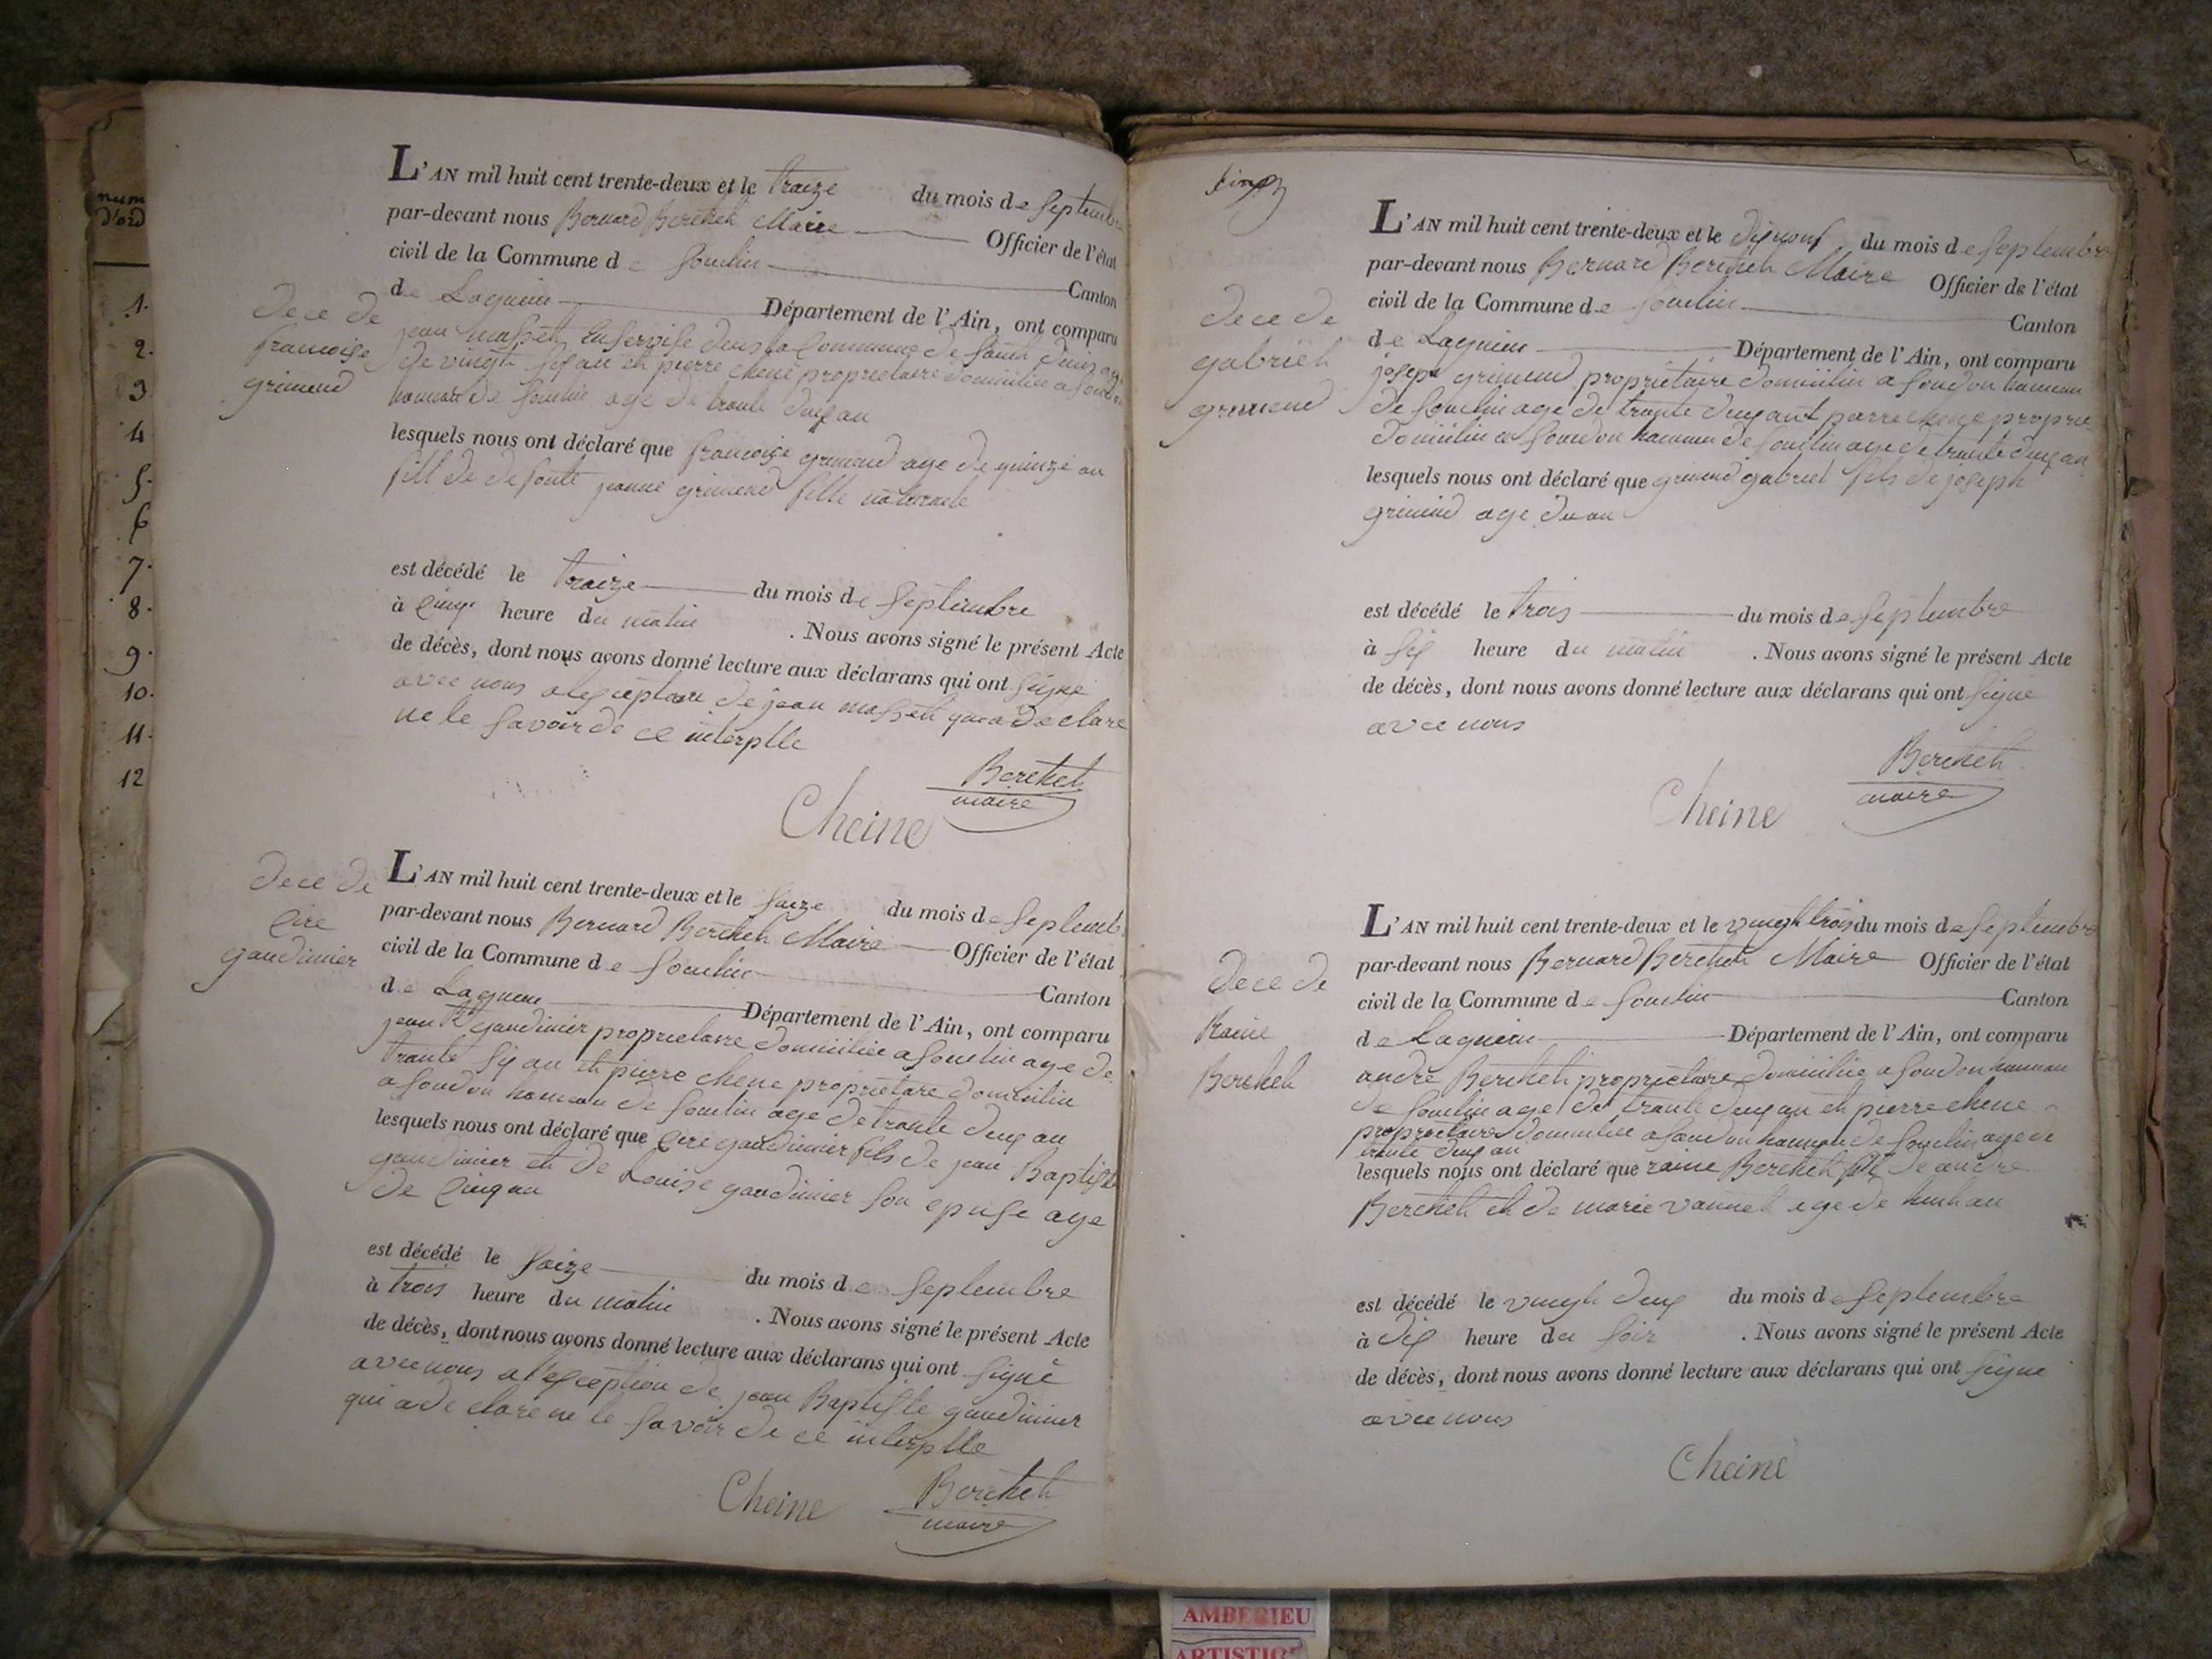 num
d'ord
1.
2.
3
4
5.
6
7.
8.
9.
10.
11.
12
L'AN mil huit cent trente-deux et le traize du mois de Septemb
par-devant nous Bernard Bertheh Maire Officier de l'état
civil de la Commune de Souclin Canton
de Lagnieu Département de l'Ain, ont comparu
dece de
francoise
grimend
jean masseh en servise dens la Commune de
de vingth six an eh pierre chene proprietaire domicilie a soudon
hameau de Souclin age de trante deux an
lesquels nous ont déclaré que francoise grimend age de quinze an
fill de defonte jeanne grimend fille naturaele
est décédé le traize du mois de Septembre
à cinq heure du matin . Nous avons signé le présent Acte
de décès, dont nous avons donné lecture aux déclarans qui ont signé
avec nous a lexception de jean masseh qui a declare
ne le savoir de ce interplle
Bertheh
maire
Cheine
dece de
Cire
gaudinier
L'AN mil huit cent trente-deux et le saize du mois de Septemb
par-devant nous Bernard Bertheh Maire Officier de l'état
civil de la Commune de Souclin Canton
de Lagnieu Département de l'Ain, ont comparu
jean Bte gaudinier proprietaire domicilie a Souclin age de
trante six an eh pierre chene proprietare domicilie
a soudon hameau de Souclin age de trante deux an
lesquels nous ont déclaré que Cire gaudinier fils de jean Baptiste
gaudinier eh de Louise gaudinier son epuse age
de cinq an
est décédé le saize du mois de Septembre
à trois heure du matin . Nous avons signé le présent Acte
de décès, dont nous avons donné lecture aux déclarans qui ont signé
avec nous a l'exception de jean Baptiste gaudinier
qui a declare ne le savoir de ce interplle
Cheine
Bertheh
maire
L'AN mil huit cent trente-deux et le dixnouf du mois de Septembre
par-devant nous Bernard Bertheh Maire Officier de l'état
civil de la Commune de Souclin Canton
de Lagnieu Département de l'Ain, ont comparu
dece de
gabrieh
grimend
joseph grimend proprietaire domicilie a soudon hameau
de Souclin age de trante deux an et pierre chene proprie
domicilie a soudon hameau de Souclin age de trante deux an
lesquels nous ont déclaré que grimend gabriel fils de joseph
grimend age du an
est décédé le trois du mois de Septembre
à six heure du matin . Nous avons signé le présent Acte
de décès, dont nous avons donné lecture aux déclarans qui ont signe
avec nous
Bertheh
maire
Cheine
dece de
Raine
Bertheh
L'AN mil huit cent trente-deux et le vingth trois du mois de Septembre
par-devant nous Bernard Bertheh Maire Officier de l'état
civil de la Commune de Souclin Canton
de Lagnieu Département de l'Ain, ont comparu
andré Bertheh proprietaire domicilie a soudon hameau
de Souclin age de trante deux an eh pierre chene
proprietaire domicilie a soudon hameau de Souclin age de
trante deux an
lesquels nous ont déclaré que raine Bertheh fille de andre
Bertheh eh de marie vannel age de huih an
est décédé le vingth deux du mois de Septembre
à dix heure du soir . Nous avons signé le présent Acte
de décès, dont nous avons donné lecture aux déclarans qui ont signe
avec nous
Cheine
AMBERIEU